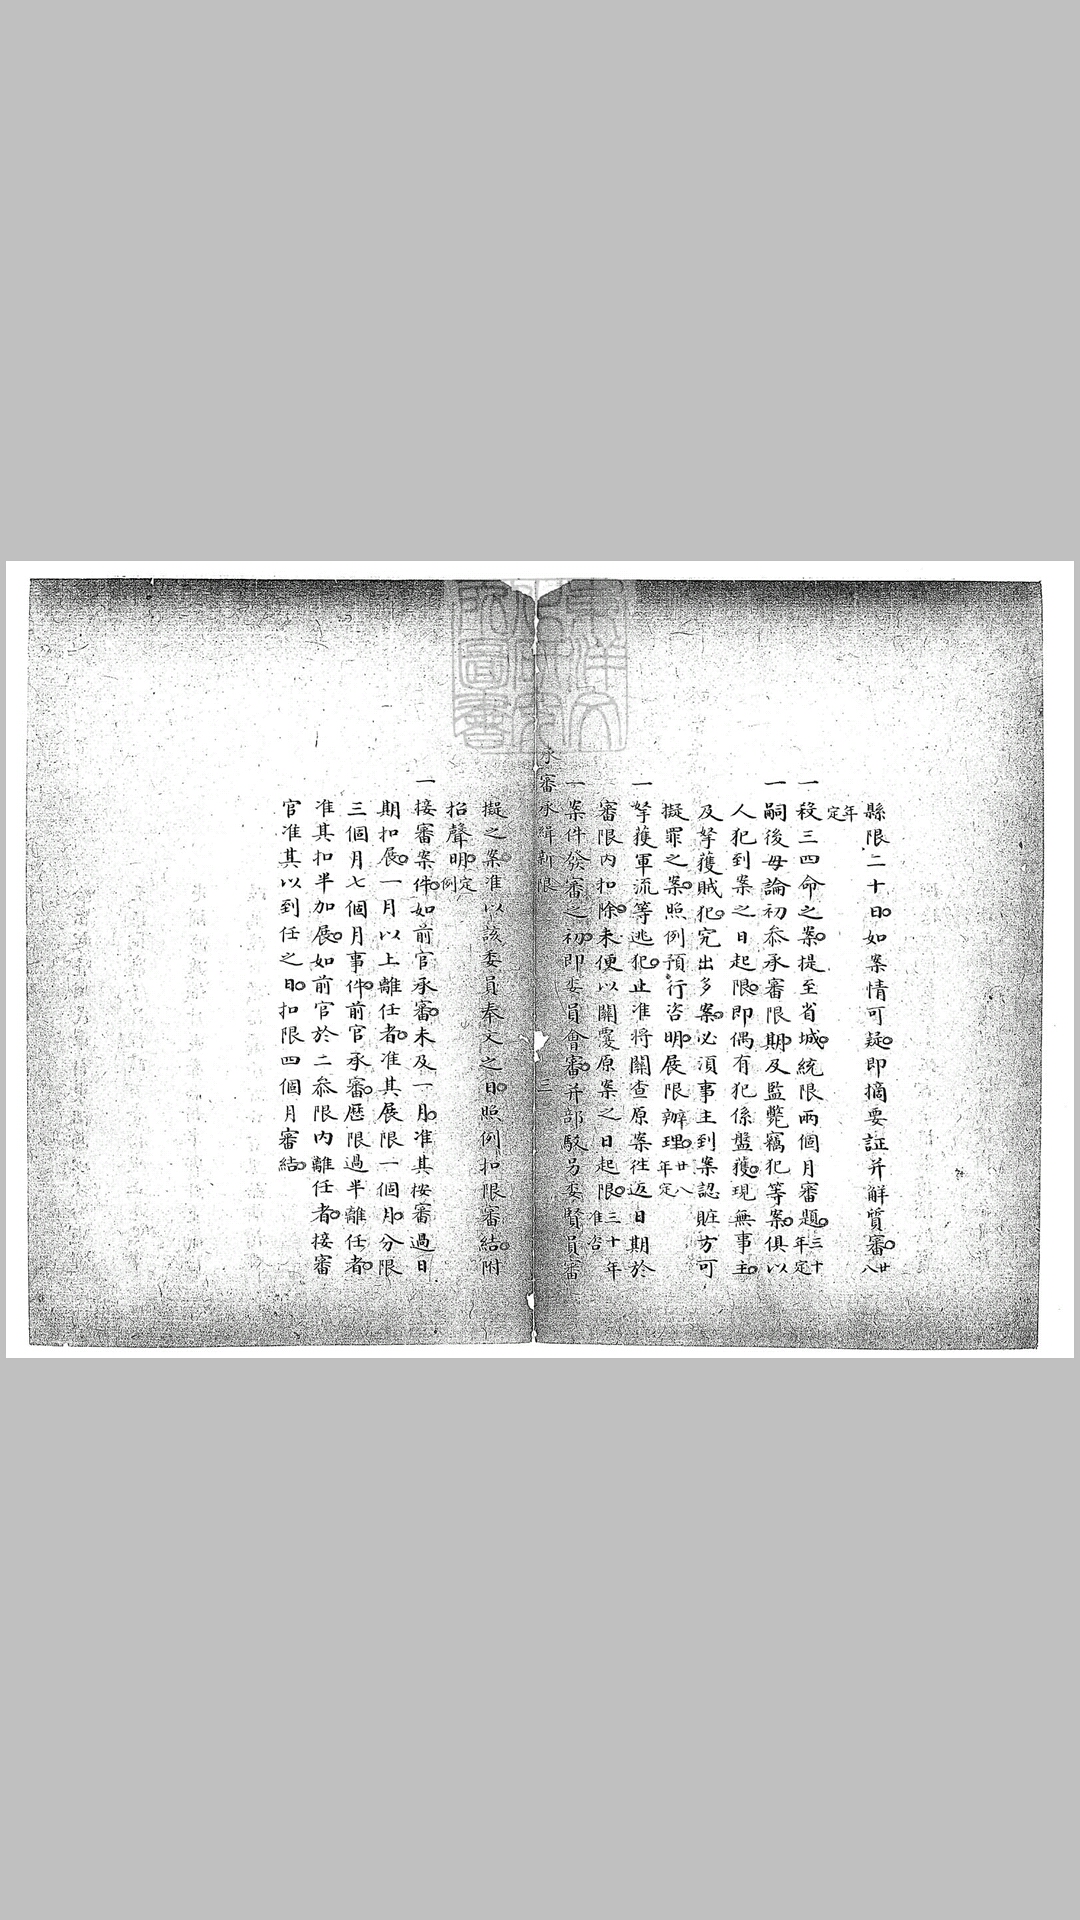 縣限二十日如案情可疑即摘要証并解質審廿八
年定
一殺三四命之案提至省城統限兩個月審題三十年定
一嗣後毋論初叅承審限期及監斃竊犯等案俱以
人犯到案之日起限即偶有犯係盤獲現無事主
及拏獲賊犯究出多案必須事主到案認賍方可
擬罪之案照例預行咨明展限辦理廿八年定
一拏獲軍流等逃犯止准將關查原案往返日期於
審限內扣除未便以關覆原案之日起限三十年准咨
一案件發審之初即委員會審并部駁另委賢員審
承審承緝新限 三
擬之案准以該委員奉文之日照例扣限審結附
招聲明定例
一接審案件如前官承審未及一月准其按審過日
期扣展一月以上離任者准其展限一個月分限
三個月七個月事件前官承審歷限過半離任者
准其扣半加展如前官於二叅限內離任者接審
官准其以到任之日扣限四個月審結